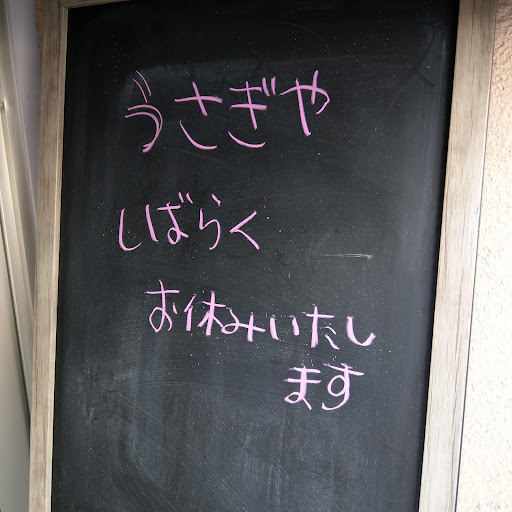 うさぎや
しばらく
お休みいたし
ます